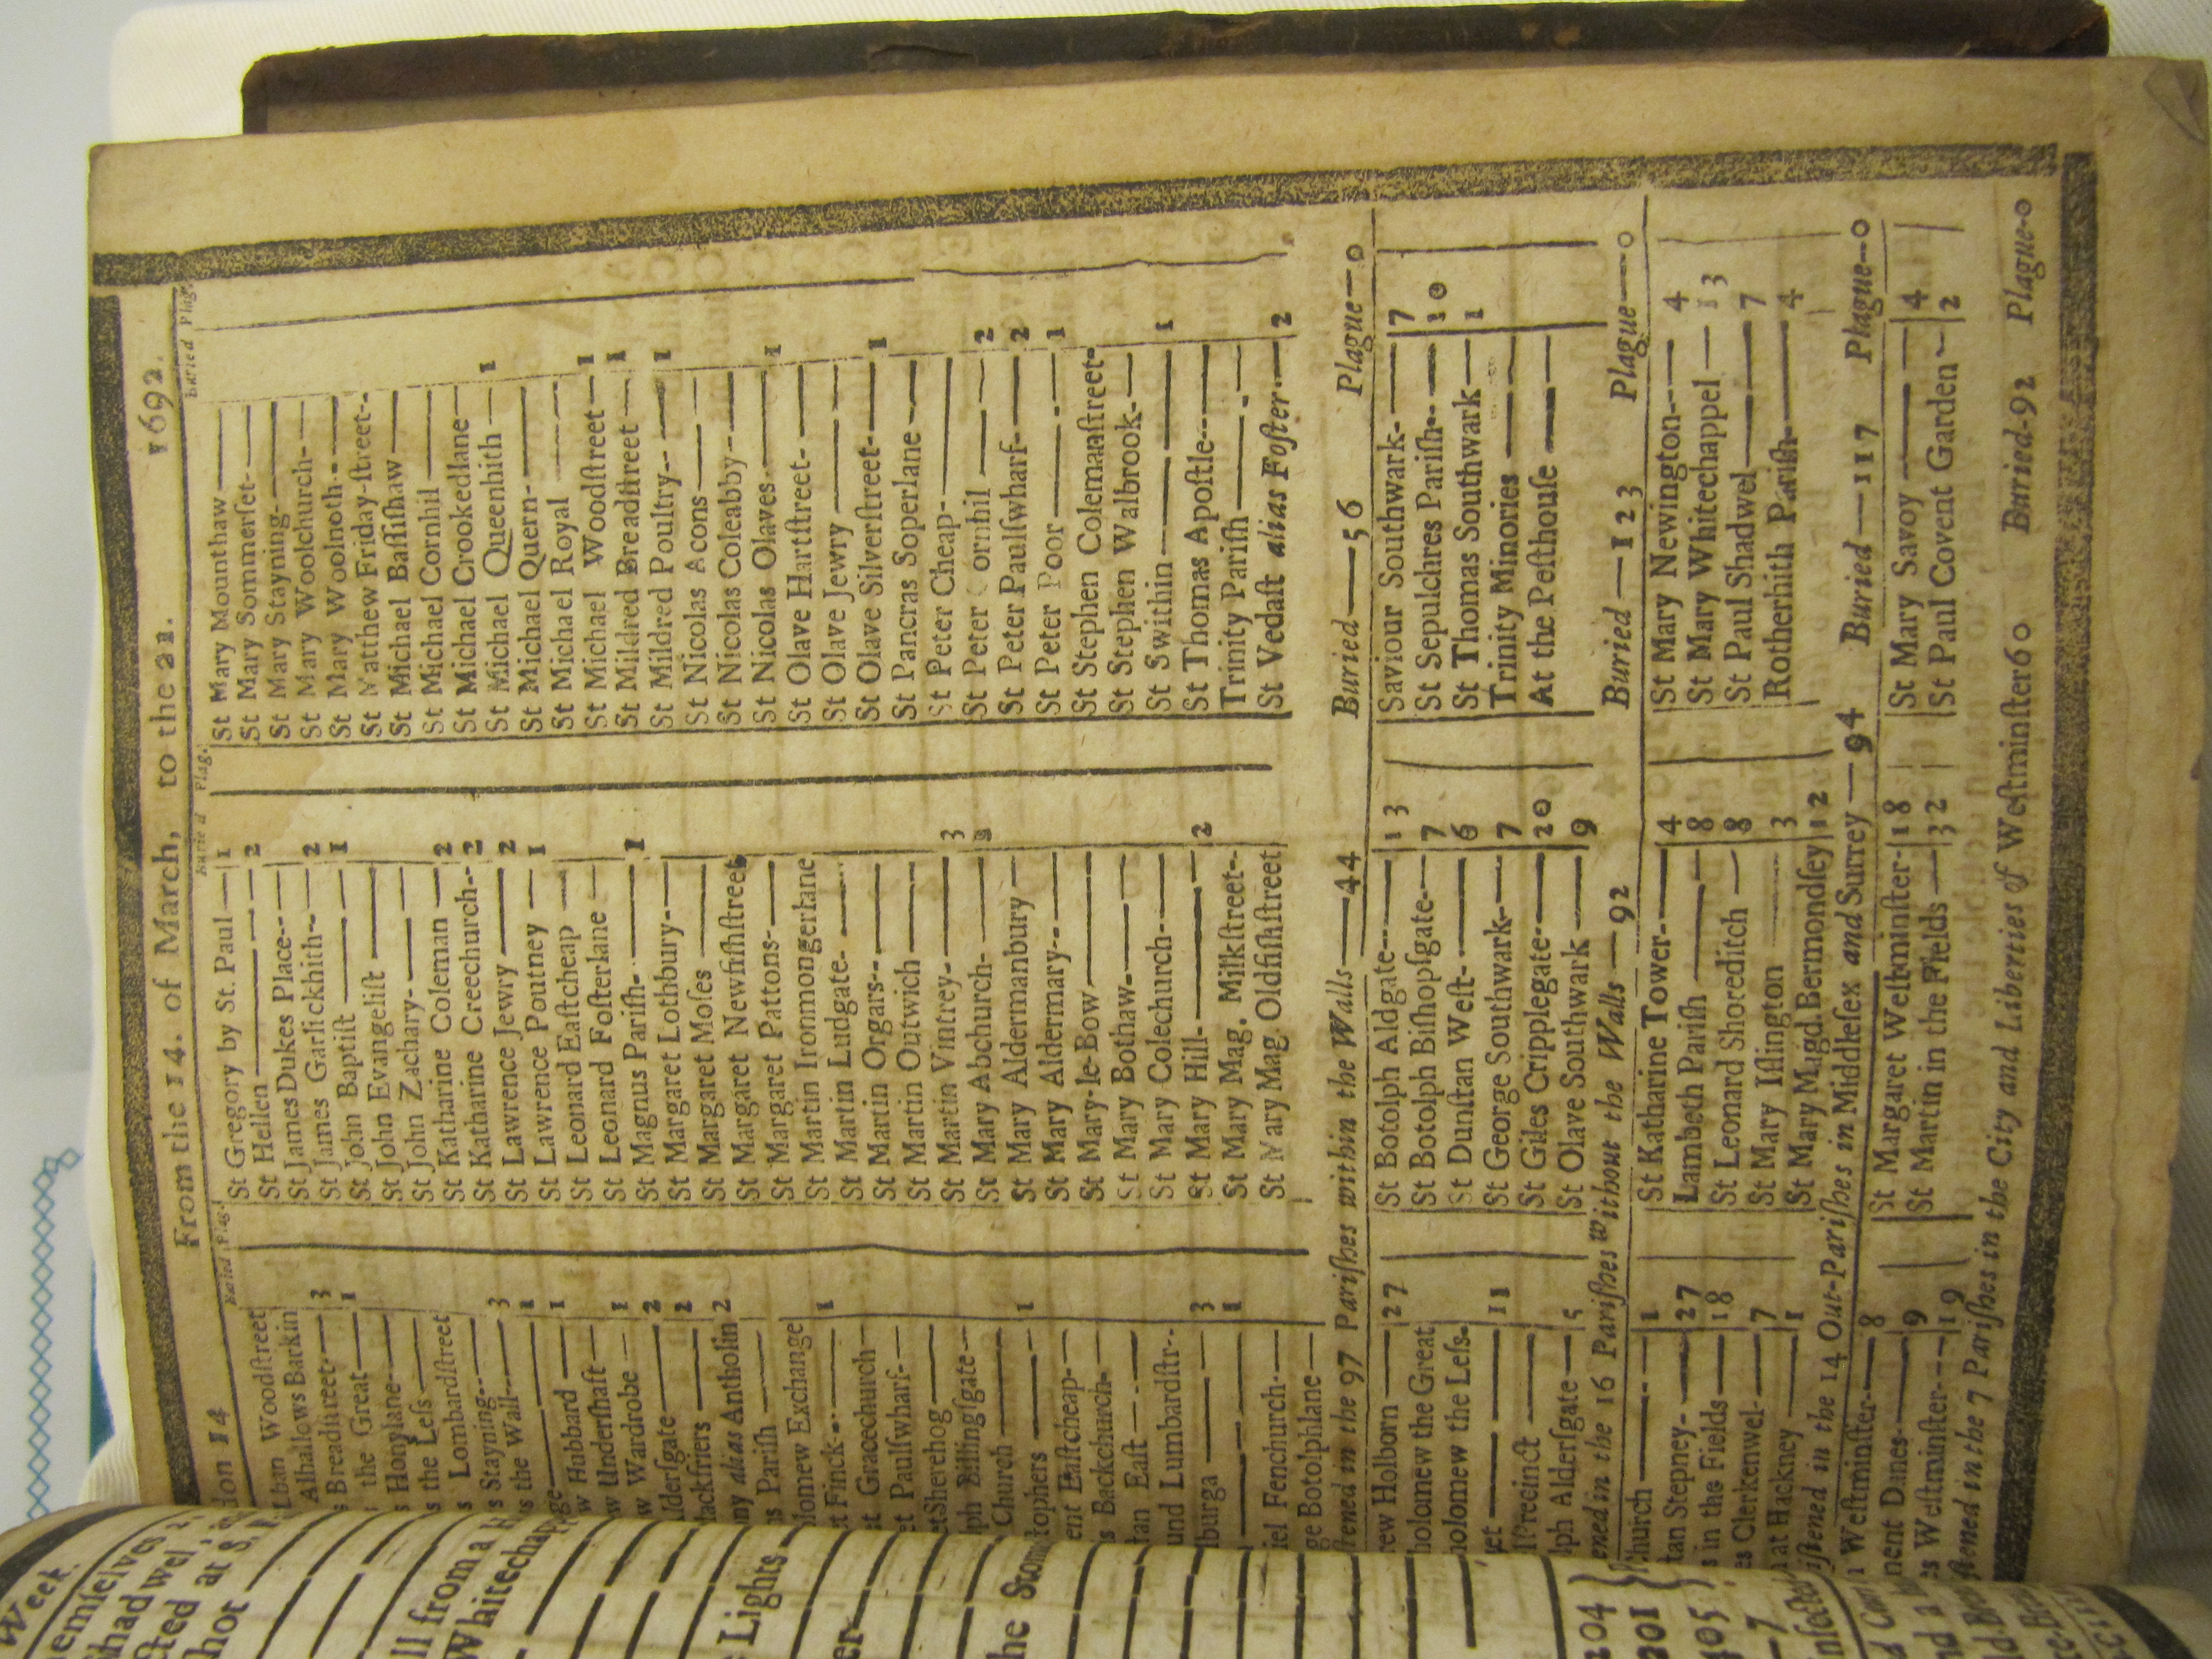 don 14 From the 14. of March, to the 21. 1692.
Buried Plag. Buried Plag. Buried Plag.
lban Woodſtreet
Alhallows Barkin
s Breadſtreet- 3
the Great 1
s Honylane
s the Leſs
s Lombardſtreet
s Stayning 3
s the Wall 1
ge 1
w Hubbard
w Underſhaft 1
w Wardrobe 2
lderſgate 2
lackfriers 2
ny alias Antholin
ns Pariſh
lomew Exchange
t Finck 1
t Gracechurch
t Paulſwharf
et Sherehog
lph Billingſgate
Church 1
tophers
ent Eaſtcheap
s Backchurch
tan Eaſt
und Lumbardſtr-
lburga 3
1
iel Fenchurch
ge Botolphlane
St Gregory by St. Paul 1
St Hellen 2
St James Dukes Place
St James Garlickhith 2
St John Baptiſt 1
St John Evangeliſt
St John Zachary
St Katharine Coleman 2
St Katharine Creechurch 2
St Lawrence Jewry 2
St Lawrence Poutney 1
St Leonard Eaſtcheap
St Leonard Foſterlane
St Magnus Pariſh 1
St Margaret Lothbury
St Margaret Moſes
St Margaret Newfiſhſtreet
St Margaret Pattons
St Martin Ironmongerlane
St Martin Ludgate
St Martin Orgars
St Martin Outwich
St Martin Vintrey 3
St Mary Abchurch 3
St Mary Aldermanbury
St Mary Aldermary
St Mary-le-Bow
St Mary Bothaw
St Mary Colechurch
St Mary Hill 2
St Mary Mag. Milkſtreet
St Mary Mag. Oldfiſhſtreet
St Mary Mounthaw
St Mary Sommerſet
St Mary Stayning
St Mary Woolchurch
St Mary Woolnoth
St Matthew Friday-ſtreet
St Michael Baſſiſhaw
St Michael Cornhil
St Michael Crookedlane
St Michael Queenhith 1
St Michael Quern
St Michael Royal
St Michael Woodſtreet 1
St Mildred Breadſtreet 1
St Mildred Poultry 1
St Nicolas Acons
St Nicolas Coleabby
St Nicolas Olaves 1
St Olave Hartſtreet
St Olave Jewry
St Olave Silverſtreet 1
St Pancras Soperlane
St Peter Cheap
St Peter Cornhil 2
St Peter Paulſwharf 2
St Peter Poor 1
St Stephen Colemanſtreet
St Stephen Walbrook
St Swithin 1
St Thomas Apoſtle
Trinity Pariſh
St Vedaſt alias Foſter 2
ſtened in the 97 Pariſhes within the Walls—44 Buried—56 Plague—0
rew Holborn 27
holomew the Great
holomew the Leſs
et 11
l Precinct
lph Alderſgate 5
St Botolph Aldgate 13
St Botolph Biſhopſgate 7
St Dunſtan Weſt 6
St George Southwark 7
St Giles Cripplegate 20
St Olave Southwark 9
Saviour Southwark 7
St Sepulchres Pariſh 10
St Thomas Southwark 1
Trinity Minories
At the Peſthouſe
ened in the 16 Pariſhes without the Walls—92 Buried—123 Plague—0
hurch 1
tan Stepney 27
s in the Fields 18
es Clerkenwel 7
at Hackney 1
St Katharine Tower 4
Lambeth Pariſh 8
St Leonard Shoreditch 8
St Mary Iſlington 3
St Mary Magd. Bermondſey 12
St Mary Newington 4
St Mary Whitechappel 13
St Paul Shadwel 7
Rotherhith Pariſh 4
iſtened in the 14 Out-Pariſhes in Middleſex and Surrey—94 Buried—117 Plague—0
Weſtminſter 8
ment Danes 9
es Weſtminſter 19
St Margaret Weſtminſter 18
St Martin in the Fields 32
St Mary Savoy 4
St Paul Covent Garden 2
ſtened in the 7 Pariſhes in the City and Liberties of Weſtminſter 60 Buried-92 Plague-0
Week
emſelves
Shadwel
cted at S.
hot
ll from a
Whitechap
Lights
er
the Stom
204
201
405
7